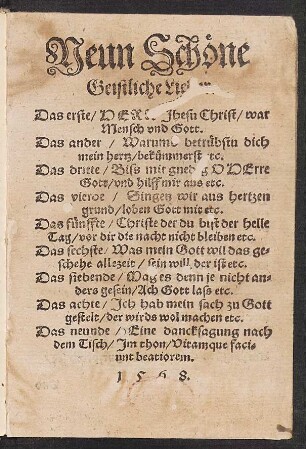 Neun Schöne
Geistliche Lieder.
Das erste / HERR Jhesu Christ / war
Mensch vnd Gott.
Das ander / Warumb betrübstu dich
mein hertz / bekümmerst etc.
Das dritte / Biss mir gnedig O HErre
Gott / vnd hilff mir aus etc.
Das vierde / Singen wir aus hertzen
grund / loben Gott mit etc.
Das fünffte / Christe der du bist der helle
Tag / vor dir die nacht nicht bleiben etc.
Das sechste / Was mein Gott will das ge-
schehe allezeit / sein will der ist etc.
Das siebende / Mag es denn je nicht an-
ders gesein / Ach Gott lass etc.
Das achte / Ich hab mein sach zu Gott
gestelt / der wirds wol machen etc.
Das neunde / Eine dancksagung nach
dem Tisch / Im thon / Vitamque faci-
unt beatiorem.
1 5 6 8.